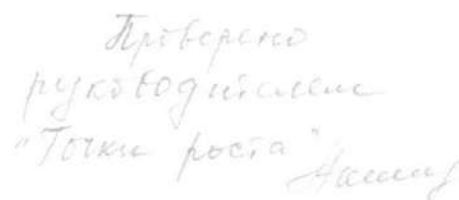 Проверено
руководителем
"Точки роста"